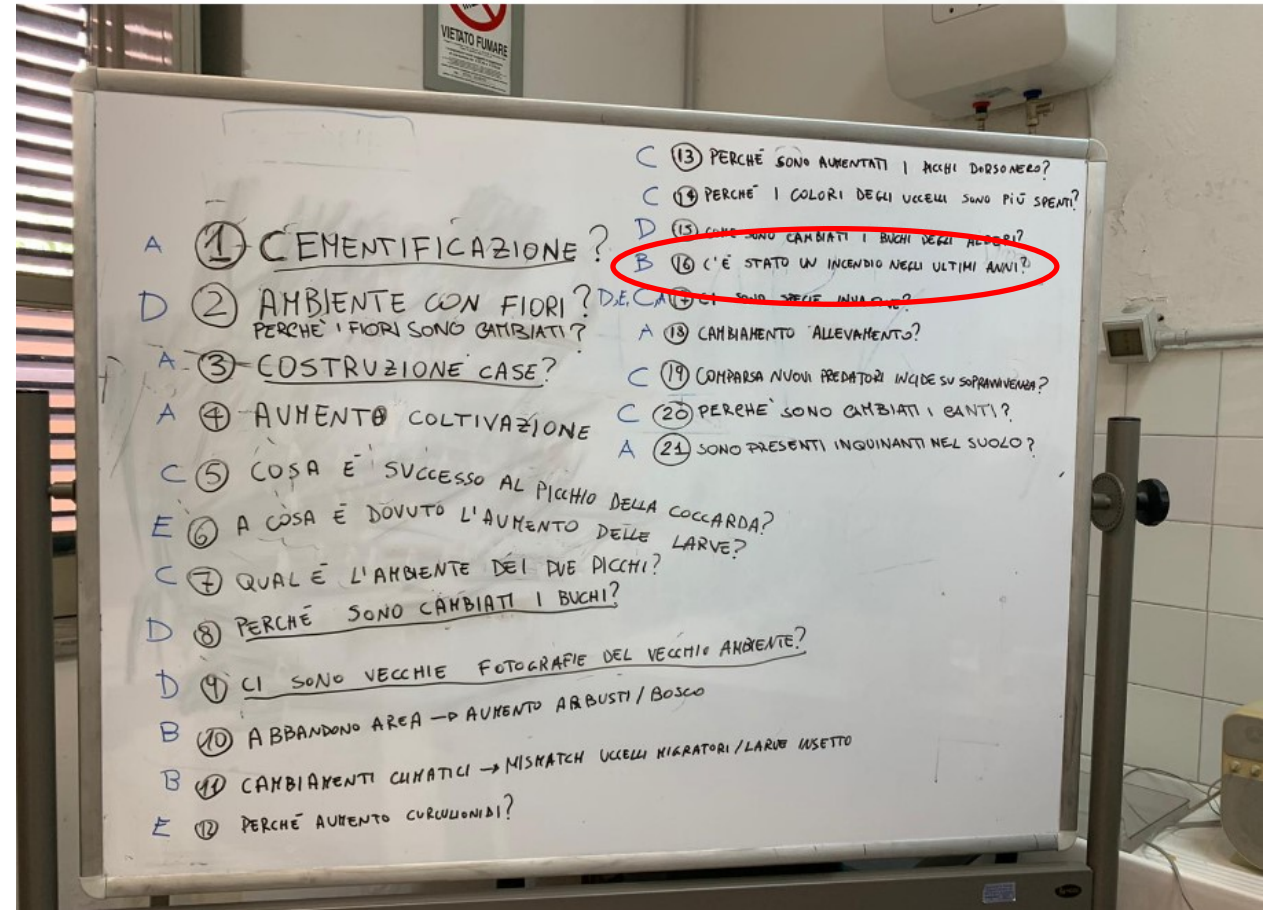 VIETATO FUMARE
A 1 CEMENTIFICAZIONE?
D 2 AMBIENTE CON FIORI?
PERCHE' I FIORI SONO CAMBIATI?
A 3 COSTRUZIONE CASE?
A 4 AUMENTO COLTIVAZIONE
C 5 COSA È SUCCESSO AL PICCHIO DELLA COCCARDA?
E 6 A COSA È DOVUTO L'AUMENTO DELLE LARVE?
C 7 QUAL È L'AMBIENTE DEI DUE PICCHI?
D 8 PERCHÉ SONO CAMBIATI I BUCHI?
D 9 CI SONO VECCHIE FOTOGRAFIE DEL VECCHIO AMBIENTE?
B 10 ABBANDONO AREA → AUMENTO ARBUSTI/BOSCO
B 11 CAMBIAMENTI CLIMATICI → MISMATCH UCCELLI MIGRATORI/LARVE INSETTO
E 12 PERCHÉ AUMENTO CURCULIONIDI?
C 13 PERCHÉ SONO AUMENTATI I PICCHI DORSONERO?
C 14 PERCHÉ I COLORI DEGLI UCCELLI SONO PIÙ SPENTI?
D 15 COME SONO CAMBIATI I BUCHI DEGLI ALBERI?
B 16 C'È STATO UN INCENDIO NEGLI ULTIMI ANNI?
D, E, C, A 17 CI SONO SPECIE INVASIVE?
A 18 CAMBIAMENTO ALLEVAMENTO?
C 19 COMPARSA NUOVI PREDATORI INCIDE SU SOPRAVVIVENZA?
C 20 PERCHE' SONO CAMBIATI I CANTI?
A 21 SONO PRESENTI INQUINANTI NEL SUOLO?